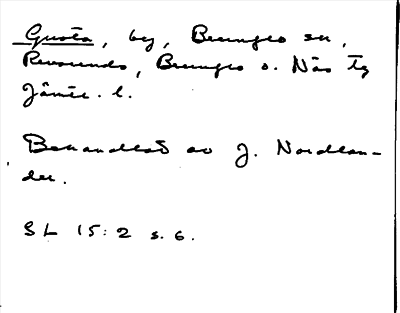 Gusta, by, Brunflo sn,
Revsunds, Brunflo o. Näs tg
Jämtl. l.
Behandlat av J. Nordlan-
der.
SL 15:2 s. 6.